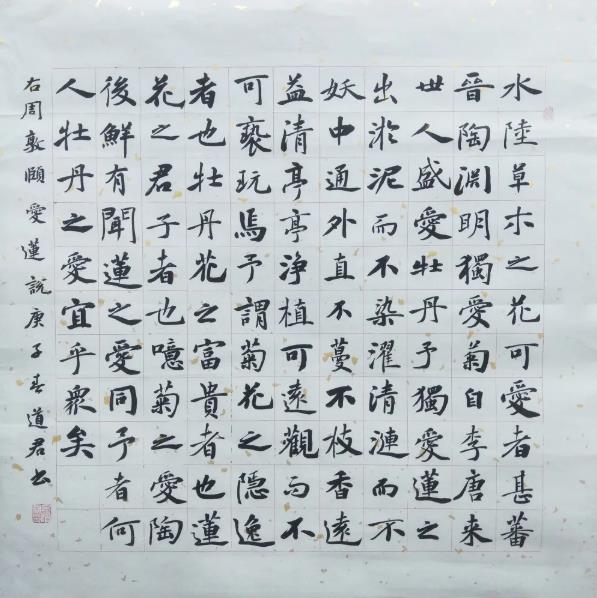 水陸草木之花可愛者甚蕃
晉陶渊明獨愛菊自李唐来
世人盛愛牡丹予獨愛蓮之
出淤泥而不染濯清漣而不
妖中通外直不蔓不枝香遠
益清亭亭淨植可遠觀而不
可褻玩焉予謂菊花之隱逸
者也牡丹花之富貴者也蓮
花之君子者也噫菊之愛陶
後鮮有聞蓮之愛同予者何
人牡丹之愛宜乎衆矣
右周敦頤愛蓮說庚子春道君书